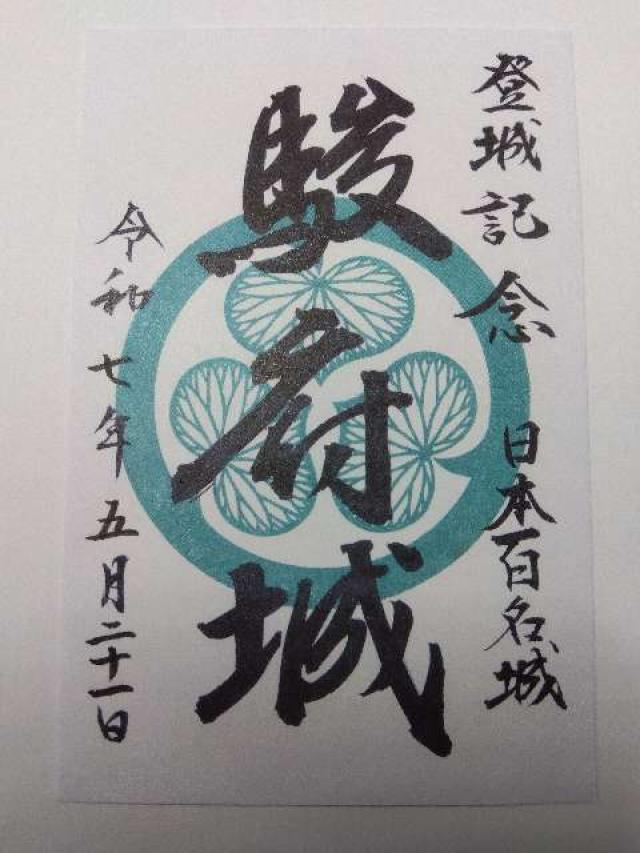 登城記念 日本百名城
駿府城
令和七年五月二十一日